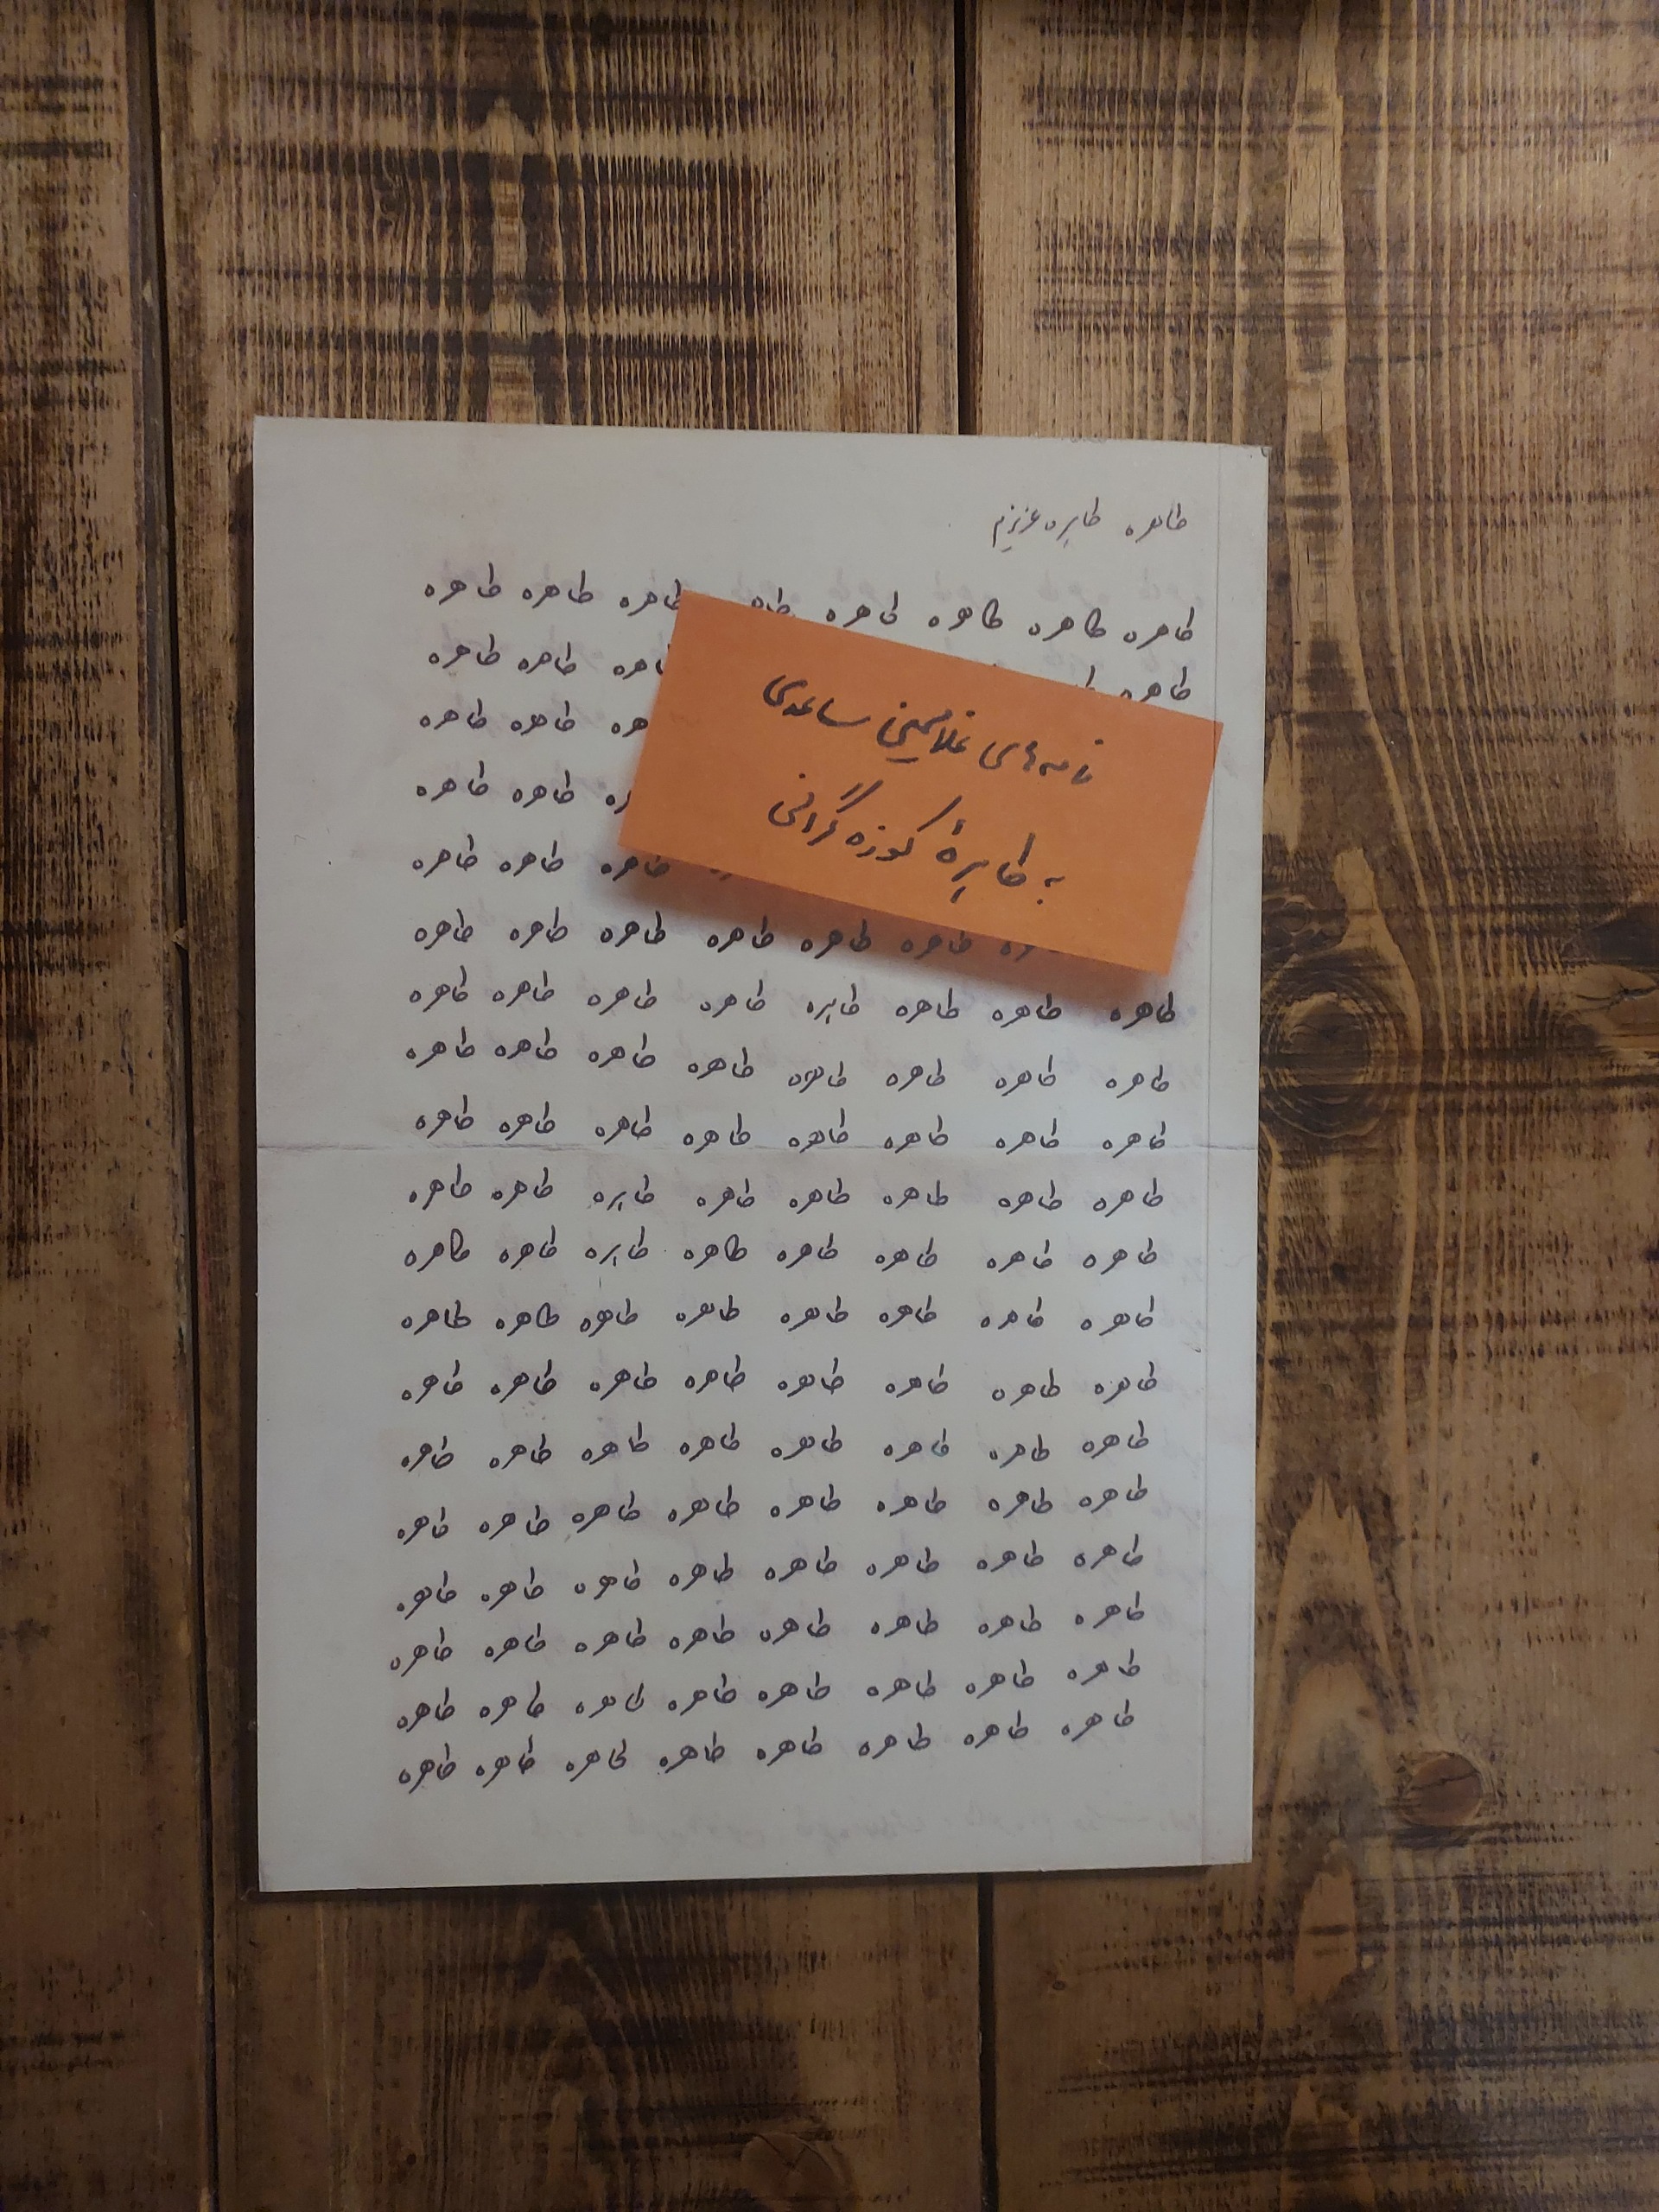 طاهره طاهره عزیزم
طاهره طاهره طاهره طاهره طاهره طاهره طاهره
طاهره طاهره طاهره
طاهره طاهره
طاهره طاهره
نامه‌های غلامحسین ساعدی
به طاهرهٔ کوزه‌گرانی
طاهره طاهره طاهره
طاهره طاهره طاهره طاهره طاهره طاهره
طاهره طاهره طاهره طاهره طاهره طاهره طاهره طاهره
طاهره طاهره طاهره طاهره طاهره طاهره طاهره طاهره
طاهره طاهره طاهره طاهره طاهره طاهره طاهره طاهره
طاهره طاهره طاهره طاهره طاهره طاهره طاهره طاهره
طاهره طاهره طاهره طاهره طاهره طاهره طاهره طاهره
طاهره طاهره طاهره طاهره طاهره طاهره طاهره طاهره
طاهره طاهره طاهره طاهره طاهره طاهره طاهره طاهره
طاهره طاهره طاهره طاهره طاهره طاهره طاهره طاهره
طاهره طاهره طاهره طاهره طاهره طاهره طاهره طاهره
طاهره طاهره طاهره طاهره طاهره طاهره طاهره طاهره
طاهره طاهره طاهره طاهره طاهره طاهره طاهره طاهره
طاهره طاهره طاهره طاهره طاهره طاهره طاهره طاهره
طاهره طاهره طاهره طاهره طاهره طاهره طاهره طاهره